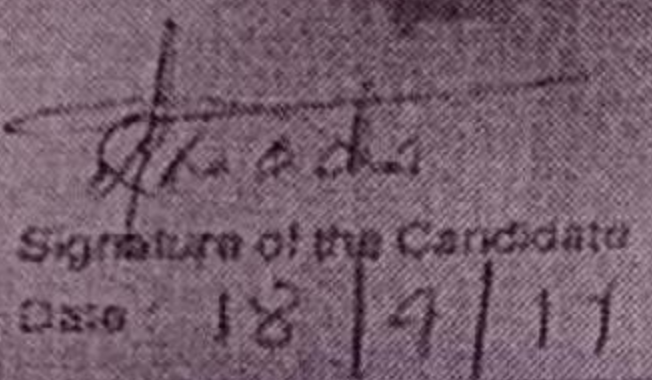 Signature of the Candidate
Date : 18/4/11